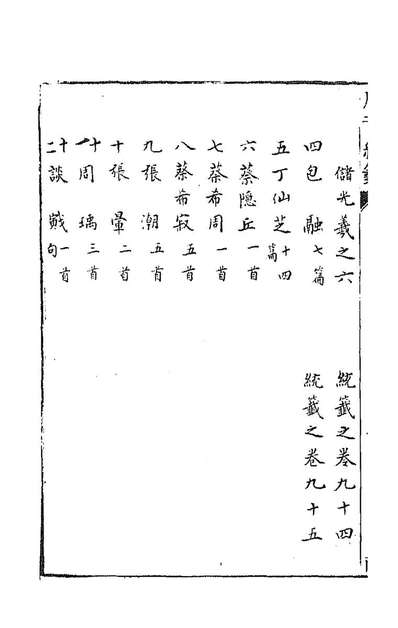 儲光羲之六 統籤之卷九十四
四包融七篇 統籤之卷九十五
五丁仙芝十四篇
六蔡隱丘一首
七蔡希周一首
八蔡希寂五首
九張潮五首
十張暈二首
十一周瑀三首
十二談戭一首句